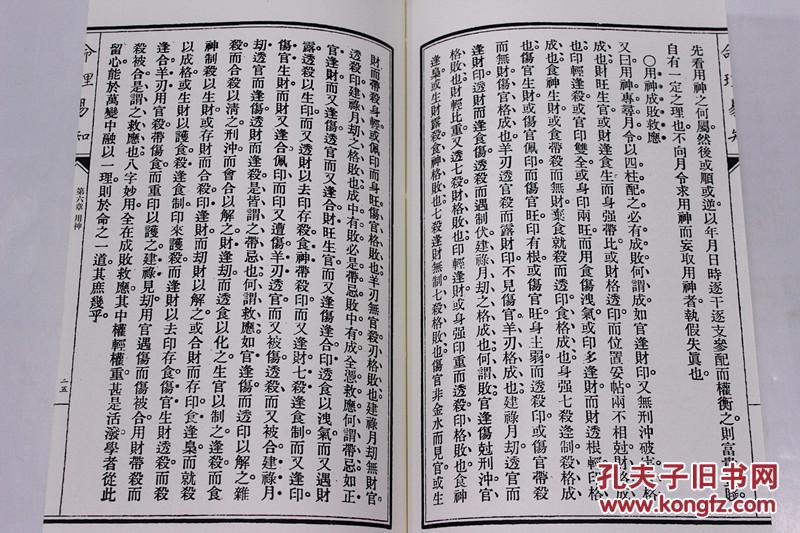 命理易知
先看用神之何屬。然後或順或逆。以年月日時。逐干逐支。參配而權衡之。則富貴貧賤。
自有一定之理也。不向月令求用神。而妄取用神者。執假失眞也。
〇用神成敗救應
又曰。用神專尋月令。以四柱配之。必有成敗。何謂成。如官逢財印。又無刑沖破害。官格
成也。財旺生官。或財逢食生而身强帶比。或財格透印而位置妥帖。兩不相尅。財格成
也。印輕逢殺。或官印雙全。或身印兩旺。而用食傷洩氣。或印多逢財。而財透根輕。印格
成也。食神生財。或食帶殺而無財。棄食就殺而透印。食格成也。身强七殺逢制。殺格成
也。傷官生財。或傷官佩印。而傷官旺。印有根。或傷官旺。身主弱。而透殺印。或傷官帶殺
而無財。傷官格成也。羊刃透官殺。而露財印。不見傷官。羊刃格成也。建祿月劫。透官而
逢財印。透財而逢食傷。透殺而遇制伏。建祿月劫之格成也。何謂敗。官逢傷尅刑沖。官
格敗也。財輕比重。又透七殺。財格敗也。印輕逢財。或身强印重而透殺。印格敗也。食神
逢梟。或生財露殺。食神格敗也。七殺逢財無制。七殺格敗也。傷官非金水而見官。或生
財而帶殺身輕。或佩印而身旺。傷官格敗也。羊刃無官殺。刃格敗也。建祿月劫。無財官。
透殺印。建祿月劫之格敗也。成中有敗。必是帶忌。敗中有成。全憑救應。何謂帶忌。如正
官逢財而又逢傷。透官而又逢合。財旺生官而又逢傷逢合。印透食以洩氣。而又遇財
露。透殺以生印。而又透財以去印存殺。食神帶殺印而又逢財。七殺逢食制而又逢印。
傷官生財。而財又逢合。佩印而印又遭傷。羊刃透官。而又被傷。透殺而又被合。建祿月
劫透官而逢傷。透財而逢殺。是皆謂之帶忌也。何謂救應。如官逢傷而透印以解之。雜
殺而合殺以清之。刑沖而會合以解之。財逢劫而透食以化之。生官以制之。逢殺而食
神制殺以生財。或存財而合殺。印逢財而劫財以解之。或合財而存印。食逢梟而就殺
以成格。或生財以護食。殺逢食制。印來護殺。而逢財以去印存食。傷官生財透殺而殺
逢合。羊刃用官殺帶傷食。而重印以護之。建祿見劫用官。遇傷而傷被合。用財帶殺而
殺被合。是謂之救應也。八字妙用。全在成敗救應。其中權輕權重。甚是活潑。學者從此
留心。能於萬變中融以一理。則於命之一道。其庶幾乎。
命理易知
第六章 用神
二五
孔夫子旧书网
KONGFZ.COM